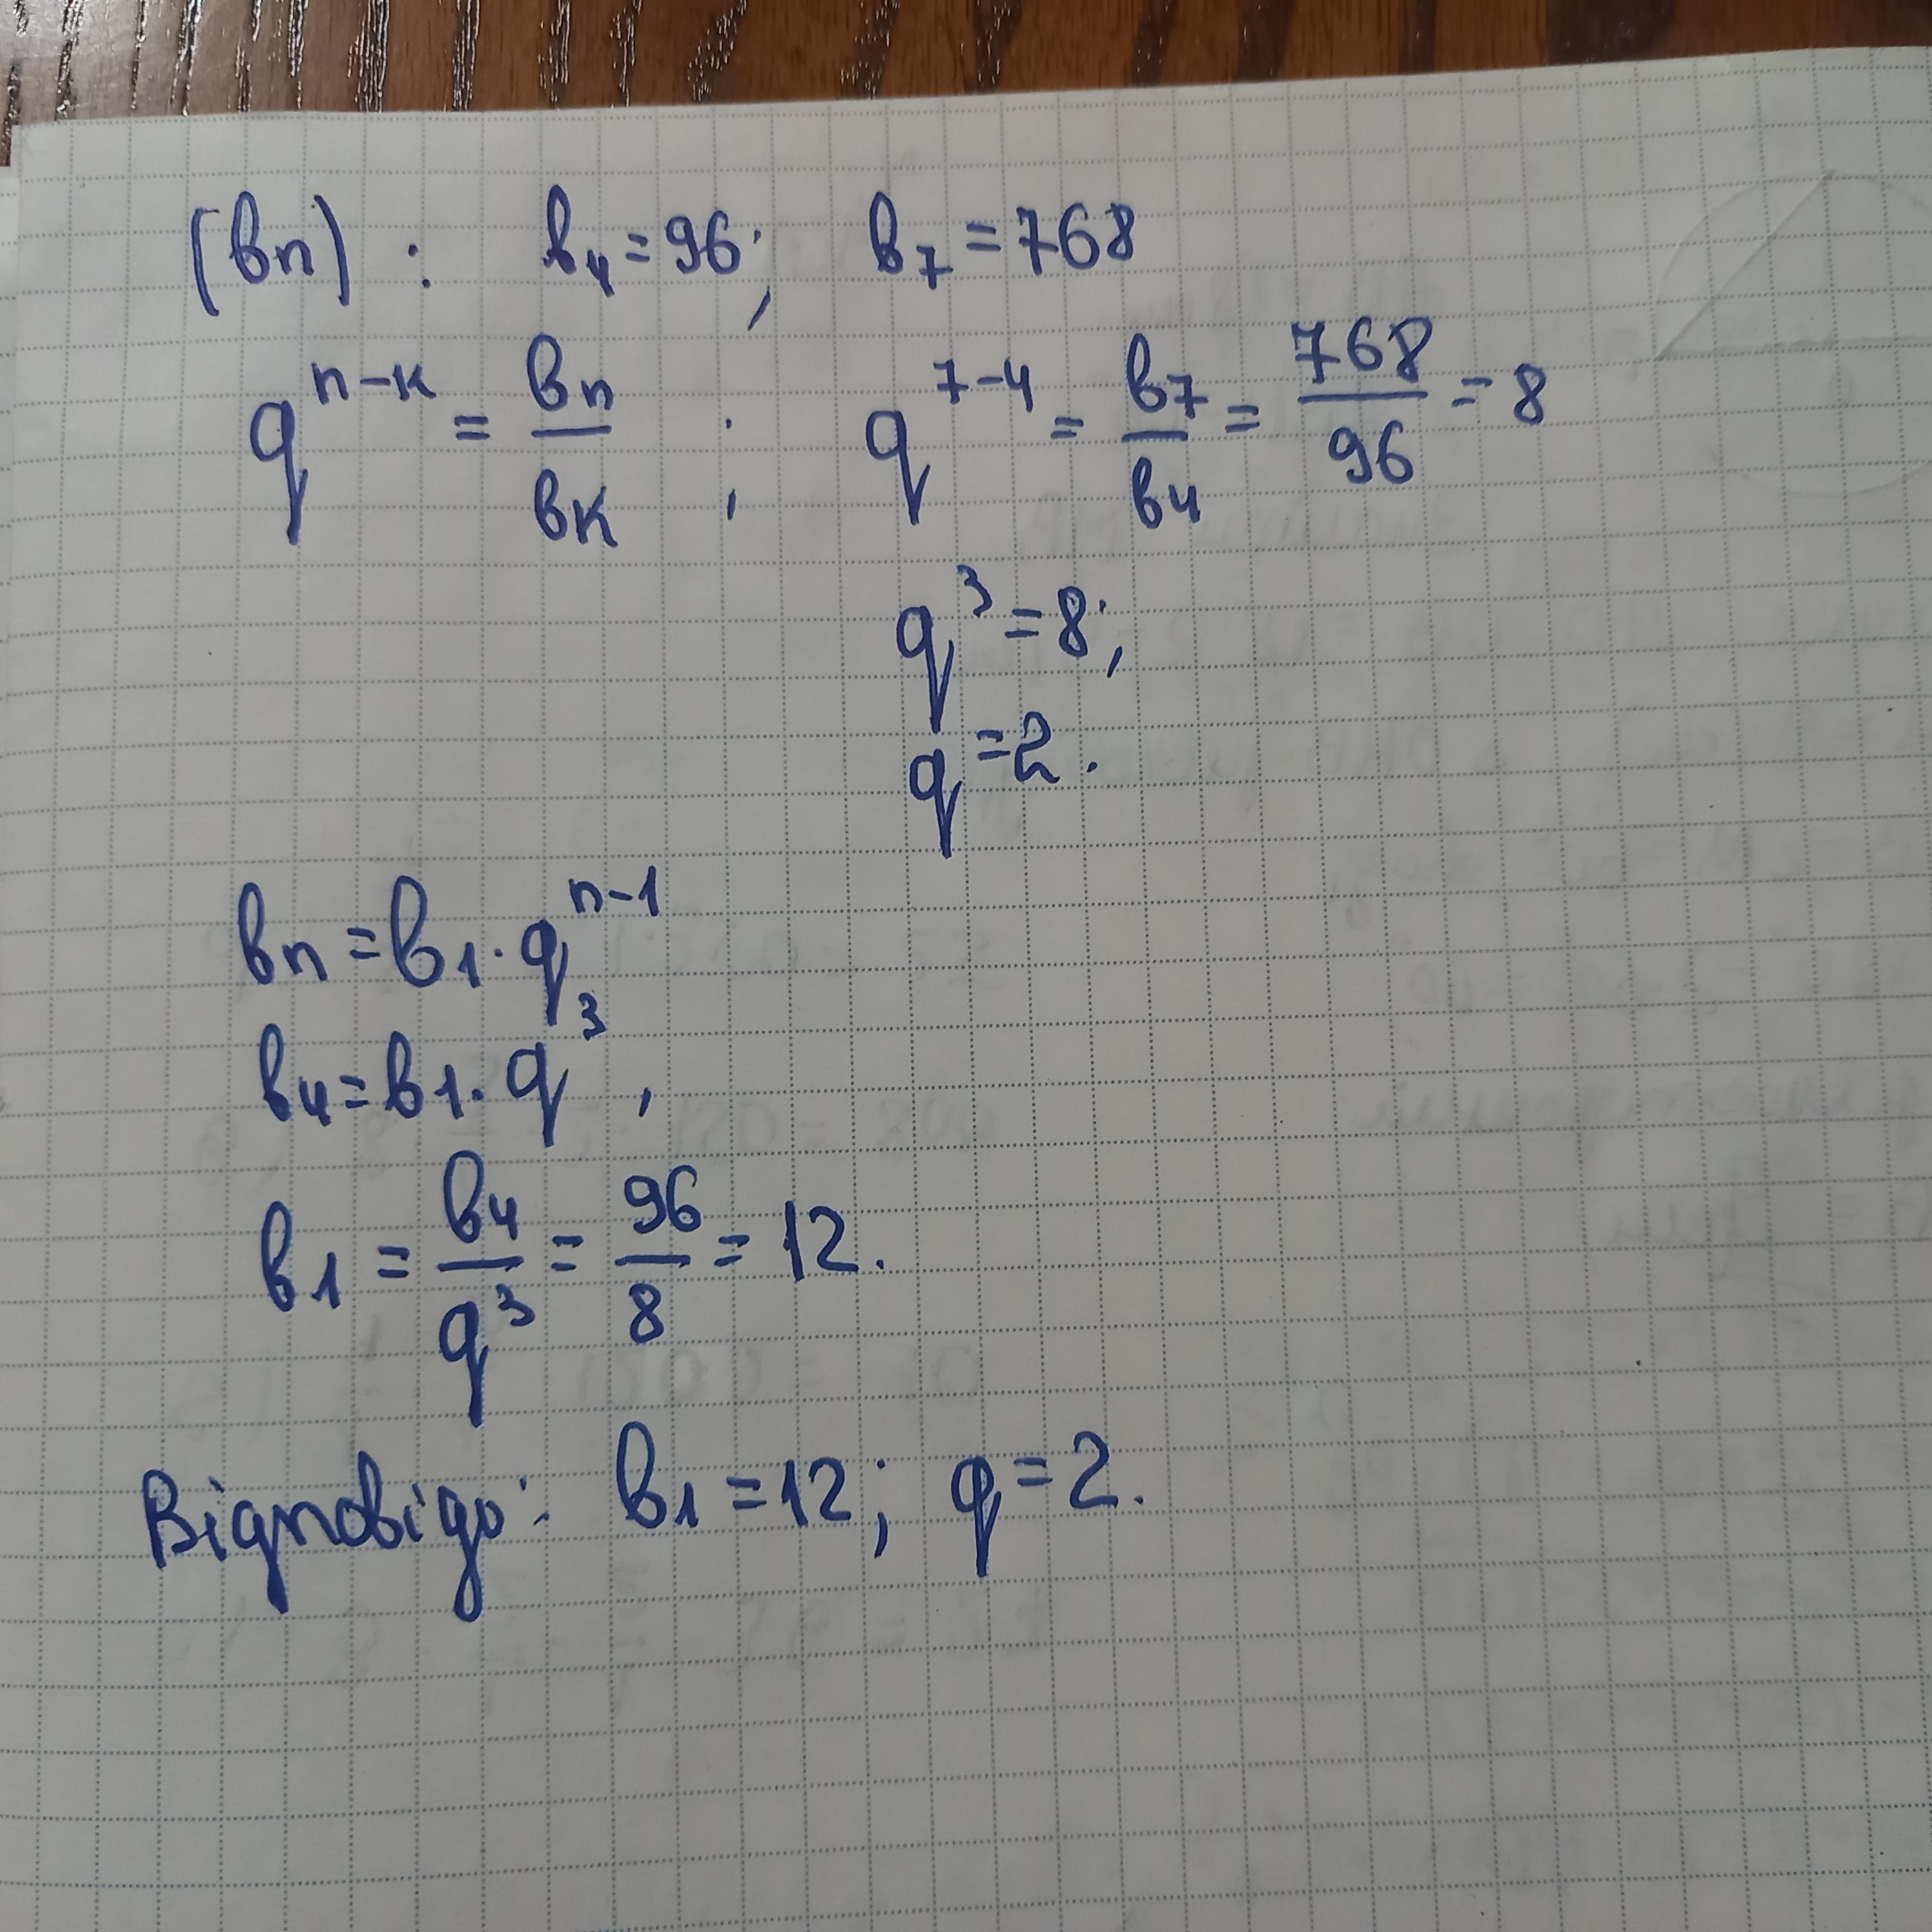 (bn) : b₄ = 96; b₇ = 768
q^(n-k) = bn/bk ; q^(7-4) = b₇/b₄ = 768/96 = 8
q³ = 8;
q = 2.
bn = b₁ · q^(n-1)
b₄ = b₁ · q³,
b₁ = b₄/q³ = 96/8 = 12.
Відповідь: b₁ = 12; q = 2.